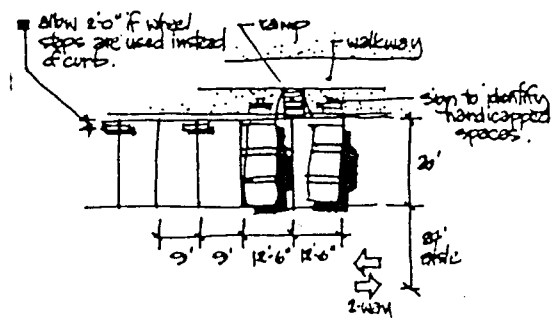 allow 2'0" if wheel
stops are used instead
of curb.
ramp
walkway
sign to identify
handicapped
spaces.
20'
9' 9' 12'-6" 12'-6"
aisle
2-way